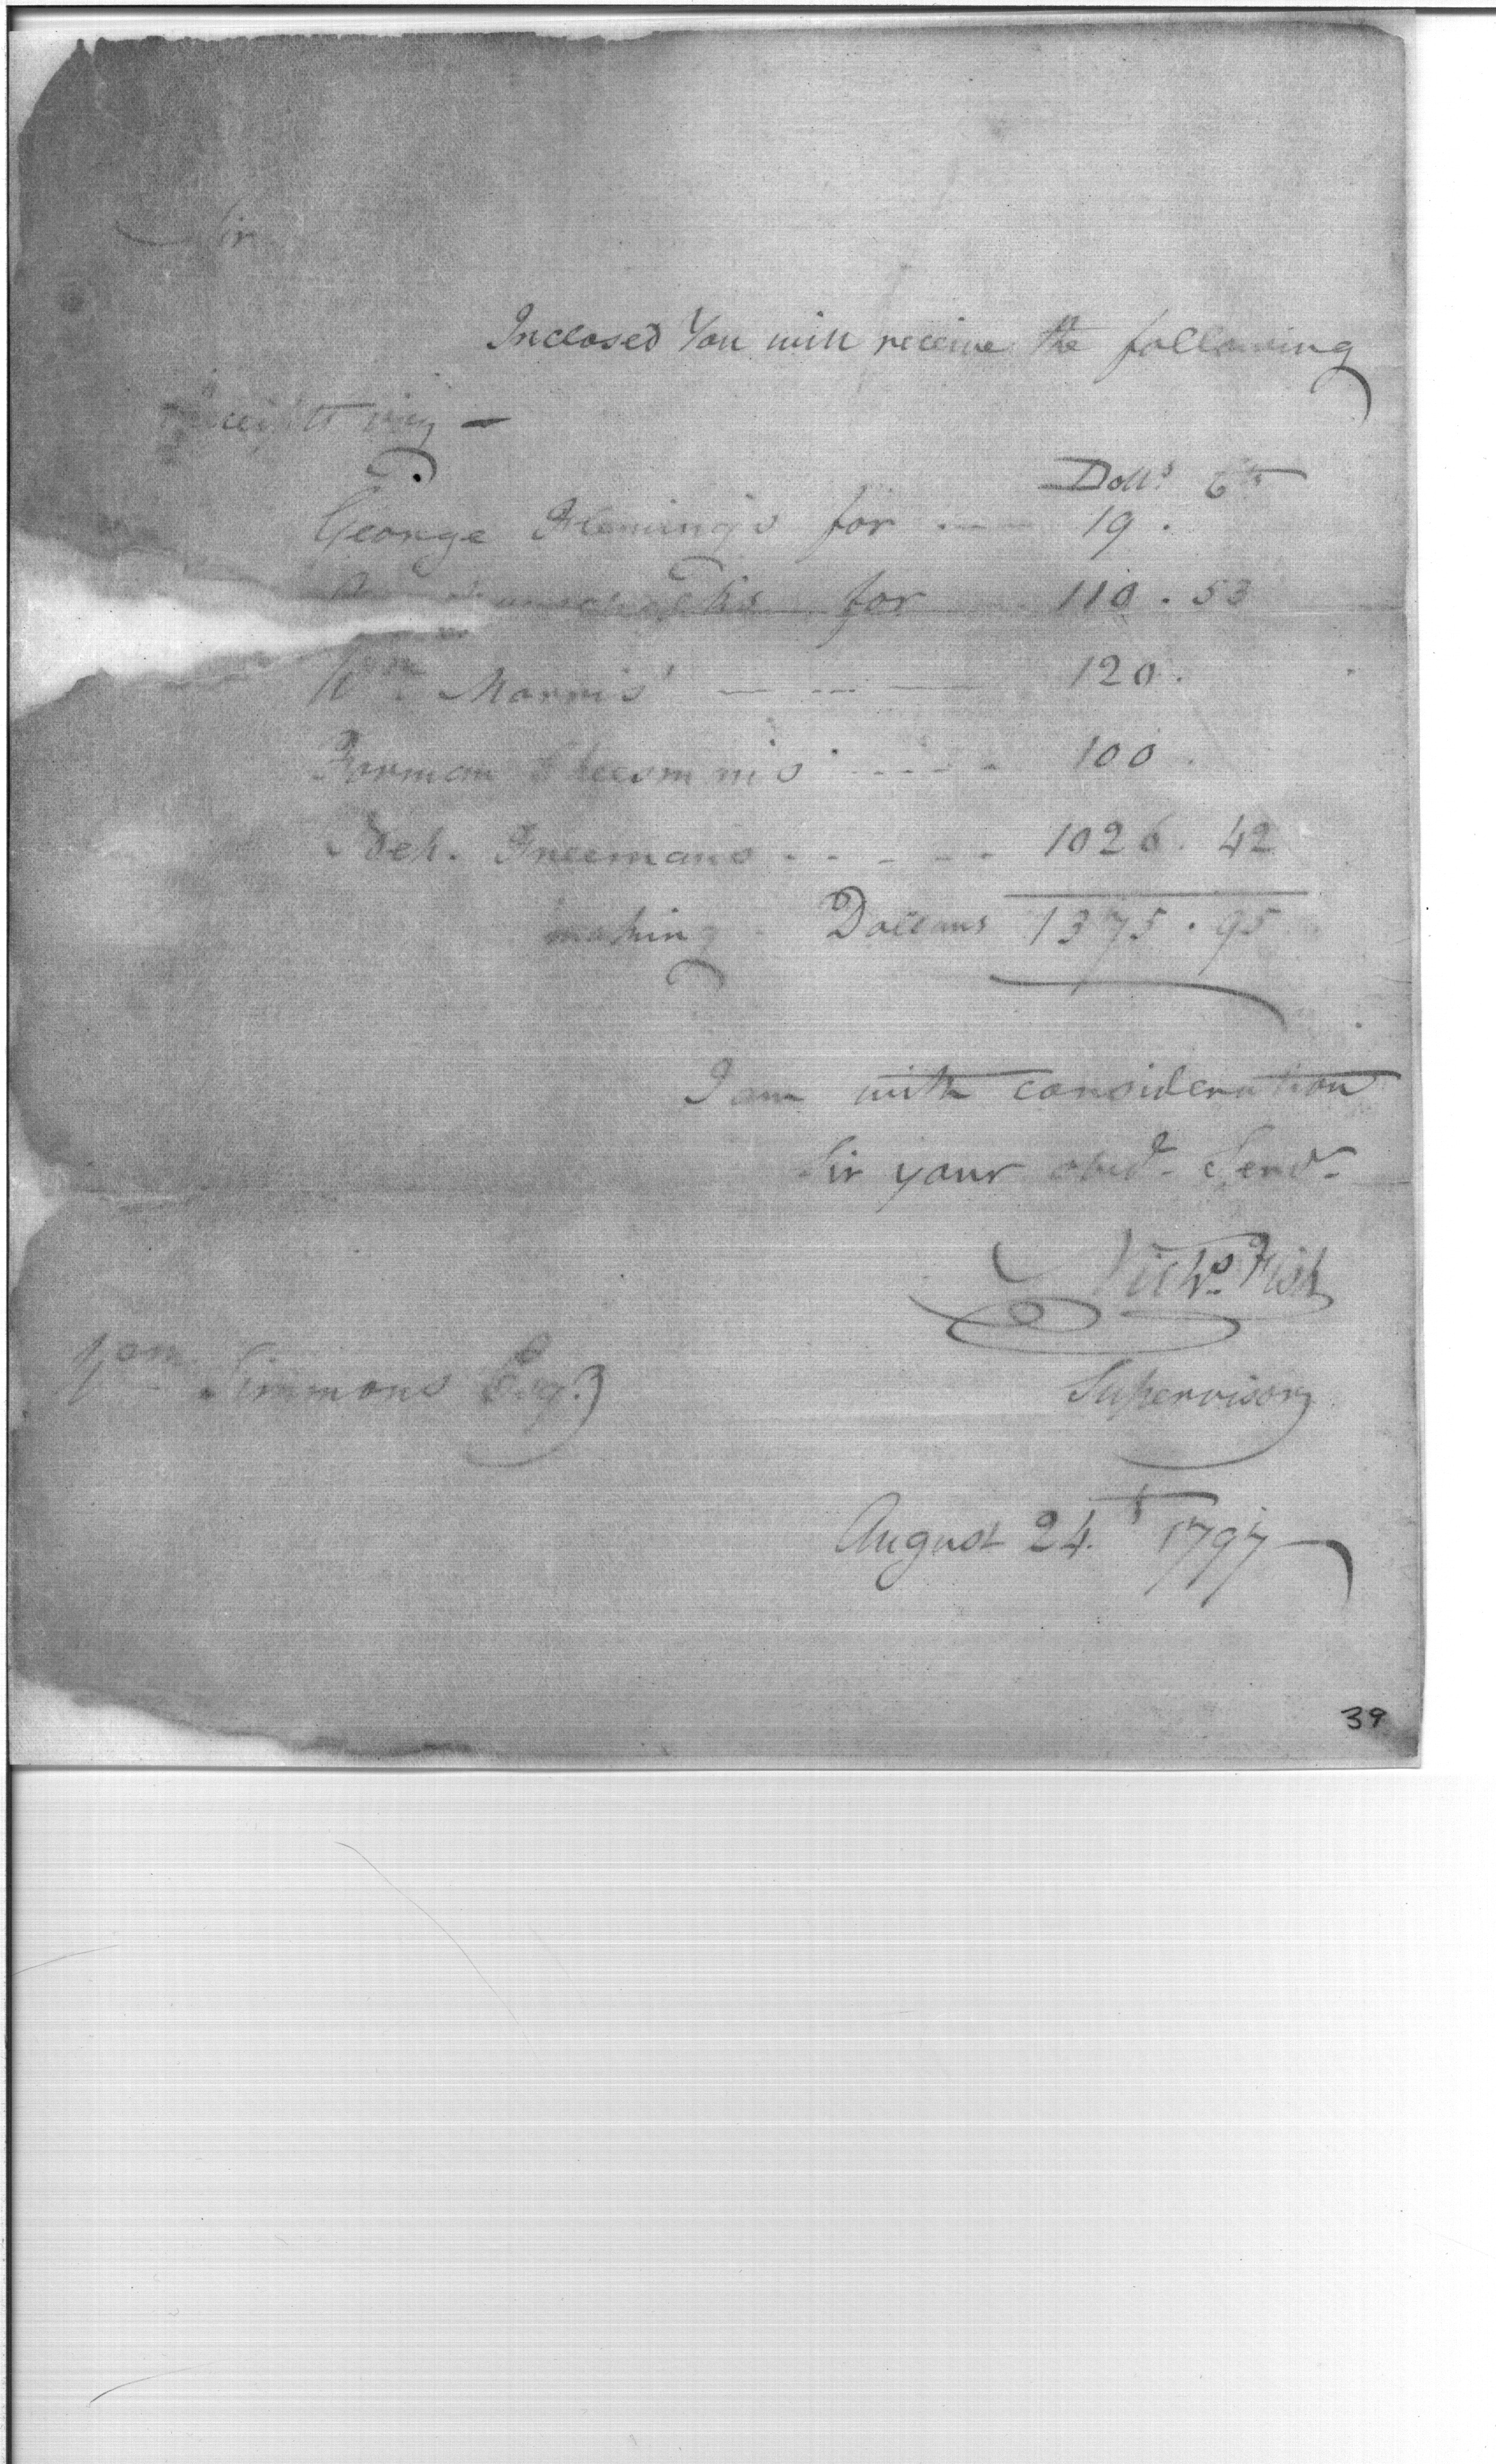 Sir
Inclosed You will receive the following
Receipts viz —
Dolls Cts
George Fleming's for 19 .
for 110 . 53
Wm Morris' 120 .
Forman 100 .
Freemans 1026 . 42
making Dollars 1375 . 95
I am with consideration
Sir your obed. Servt.
Nichs. Fish
Supervisor
Simmons Esq.
August 24th 1797
39